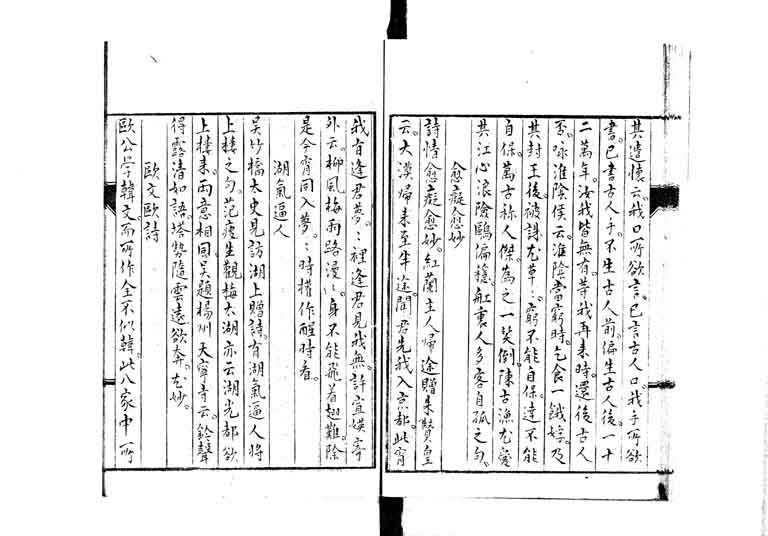 其遣懷云。我口所欲言。已言古人口。我手所欲
書。已書古人手。不生古人前。偏生古人後。一十
二萬年。汝我皆無有。等我再來時。還後古人
否。咏淮陰侯云。淮陰當窮時。乞食一餓殍。及
其封王後。被誅尤草〻。窮不能自保。達不能
自保。萬古稱人傑。為之一笑倒。陳古漁尤愛
其江心浪險鷗偏穩。舡裏人多客自孤之句。
愈癡愈妙
詩情愈癡愈妙。紅蘭主人歸途贈朱贊皇
云。大漠歸來至半途。聞君先我入京都。此宵
我有逢君夢。〻裡逢君見我無。許宜媖寄
外云。柳風梅雨路漫〻。身不能飛着翅難。除
是今宵同入夢。〻時權作醒時看。
湖氣逼人
吳竹橋太史見訪湖上贈詩。有湖氣逼人將
上樓之句。范瘦生觀梅太湖亦云湖光都欲
上樓來。兩意相同。吳題楊州天寧寺云。鈴聲
得露清如語。塔勢隨雲遠欲奔。尤妙。
歐文歐詩
歐公學韓文而所作全不似韓。此八家中所